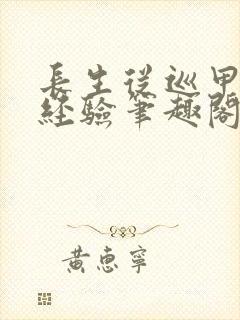 長生從巡甲
經驗筆趣閣
黃惠寧